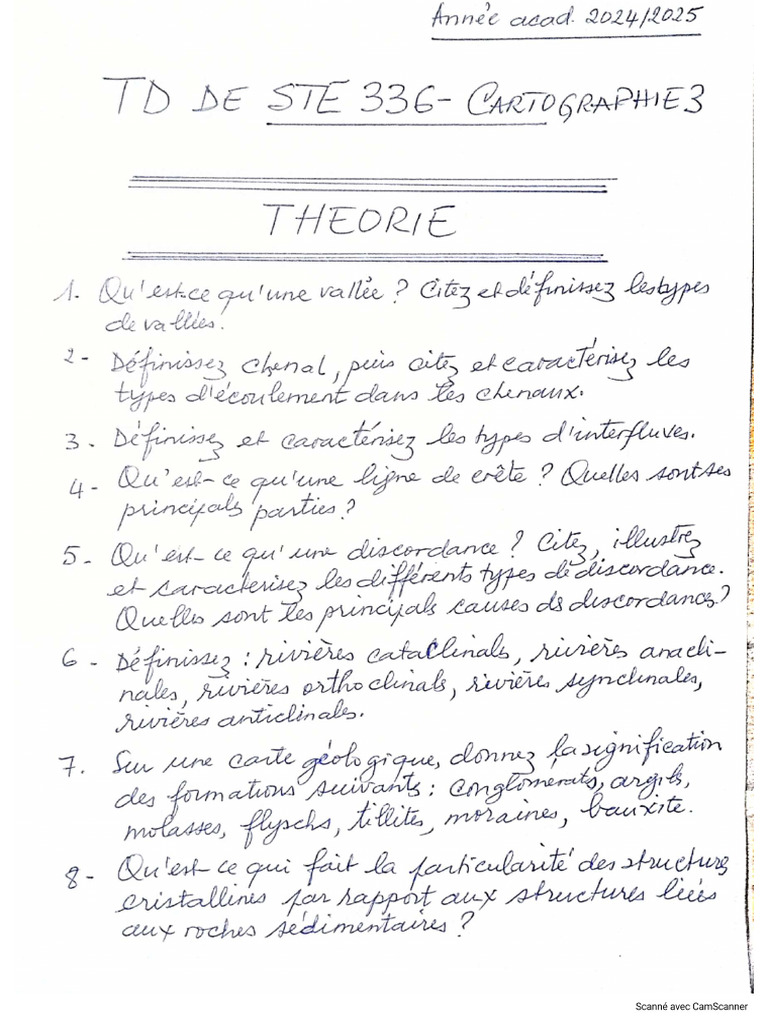 Année acad. 2024/2025
TD DE STE 336- CARTOGRAPHIE 3
THEORIE
1. Qu'est-ce qu'une vallée ? Citez et définissez les types
de vallées.
2- Définissez chenal, puis citez et caractérisez les
types d'écoulement dans les chenaux.
3. Définissez et caractérisez les types d'interfluves.
4- Qu'est-ce qu'une ligne de crête ? Quelles sont ses
principales parties ?
5- Qu'est-ce qu'une discordance ? Citez, illustrez
et caractérisez les différents types de discordance.
Quelles sont les principales causes de discordances ?
6- Définissez : rivières cataclinales, rivières anacli-
nales, rivières orthoclinales, rivières synclinales,
rivières anticlinales.
7. Sur une carte géologique, donnez la signification
des formations suivants : conglomérats, argiles,
molasses, flyschs, tillites, moraines, bauxite.
8- Qu'est-ce qui fait la particularité des structures
cristallines par rapport aux structures liées
aux roches sédimentaires ?
Scanné avec CamScanner